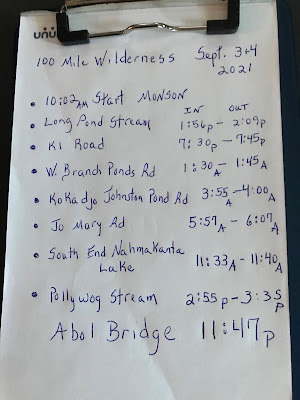 unu
100 Mile Wilderness Sept. 3+4
2021
• 10:02AM Start MONSON
IN OUT
• Long Pond Stream 1:56p - 2:09p
• KI Road 7:30p - 7:45p
• W. Branch Ponds Rd 1:30A - 1:45A
• Kokadjo Johnston Pond Rd 3:55A - 4:00A
• Jo Mary Rd 5:57A - 6:07A
• South End Nahmakanta
Lake 11:33A - 11:40A
• Pollywog Stream 2:55p - 3:35p
Abol Bridge 11:47p